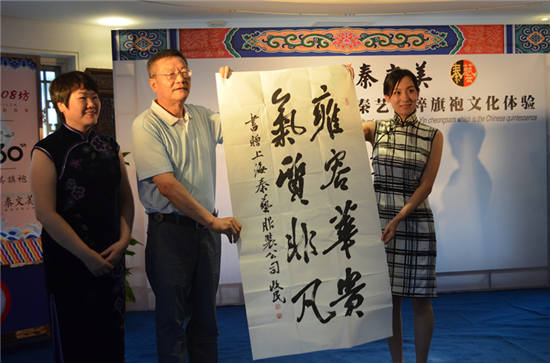 雍容华贵
氣質非凡
書贈上海秦藝服裝公司
秦文美
秦艺
秦艺
粹旗袍文化体验
cheongsam which is the Chinese quintessence
08坊
旗袍
秦文美